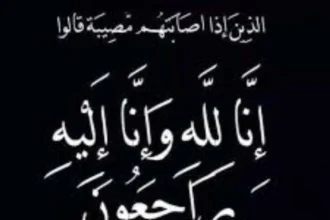 الذين إذا اصابتهم مصيبة قالوا
إنَّا لله وَإِنَّا إِلَيْهِ
رَاجَعُونَ